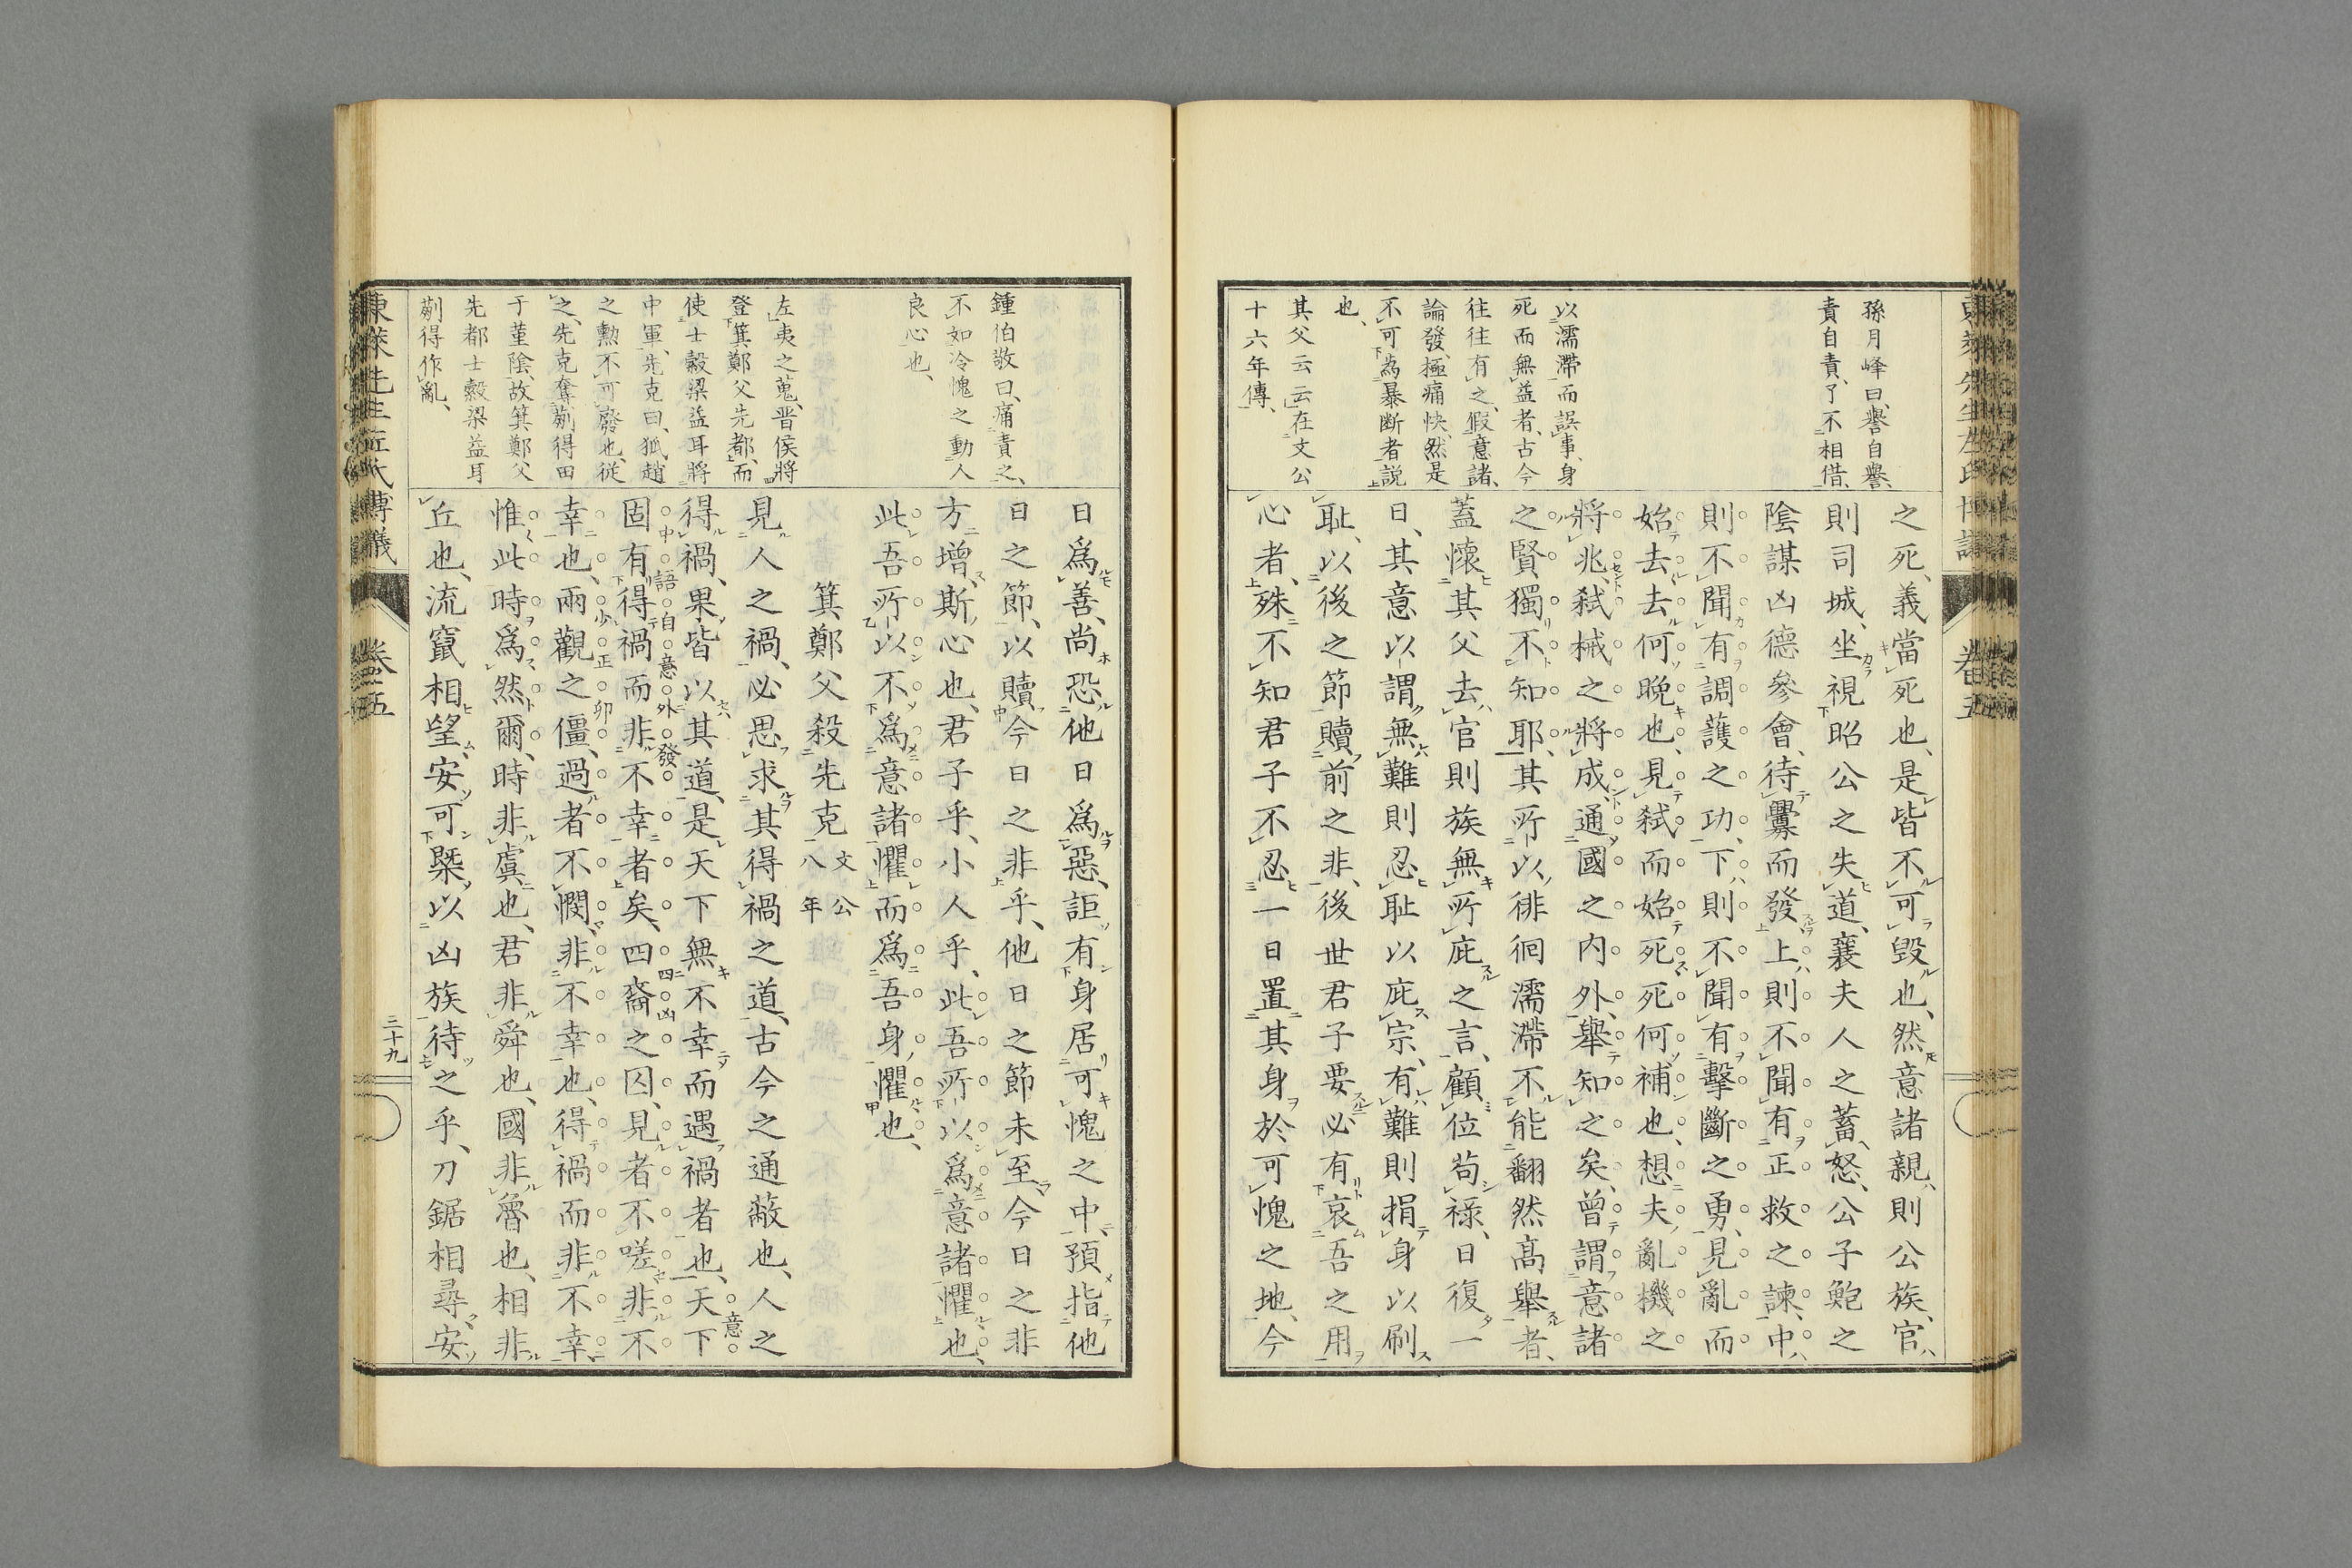 東萊先生左氏博議
卷五
孫月峰曰、譽自譽、
責自責、了不相借、
以濡滯而誤事、身
死而無益者、古今
往往有之、假意諸、
論發、極痛快、然是
不可為暴断者説
也、
其父云云在文公
十六年傳、
之死、義當死也、是皆不可毀也、然意諸親、則公族、官、
則司城、坐視昭公之失道、襄夫人之蓄怒、公子鮑之
陰謀凶德參會、待釁而發、上則不聞有正救之諫、中、
則不聞有調護之功、下則不聞有擊斷之勇、見亂而
始去去何晚也、見弑而始死死何補也、想夫亂機之
將兆、弑械之將成、通國之内外、舉知之矣、曾謂意諸
之賢獨不知耶、其所以徘徊濡滯不能翻然高舉者、
蓋懷其父去官則族無所庇之言、顧位苟祿、日復一
日、其意以謂無難則忍耻以庇宗、有難則捐身以刷
耻、以後之節贖前之非、後世君子要必有哀吾之用
心者、殊不知君子不忍一日置其身於可愧之地、今
鍾伯敬曰、痛責之、
不如冷愧之動人
良心也、
左夷之蒐、晋侯將
登箕鄭父先都、而
使士縠梁益耳將
中軍、先克曰、狐趙
之勲不可廢也、從
之、先克奪蒯得田
于菫陰、故箕鄭父
先都士縠梁益耳
蒯得作亂、
日爲善、尚恐他日爲惡、詎有身居可愧之中、預指他
日之節、以贖今日之非乎、他日之節未至今日之非
方增、斯心也、君子乎、小人乎、此吾所以爲意諸懼也、
此吾所以不爲意諸懼而爲吾身懼也、
箕鄭父殺先克 文公八年
見人之禍、必思求其得禍之道、古今之通蔽也、人之
得禍、果皆以其道、是天下無不幸而遇禍者也、天下
固有得禍而非不幸者矣、四裔之囚、見者不嗟非不
幸也、兩觀之僵、過者不憫、非不幸也、得禍而非不幸、
惟此時爲然爾、時非虞也、君非舜也、國非魯也、相非
丘也、流竄相望、安可槩以凶族待之乎、刀鋸相尋、安
中語自意外發
四凶
意
少正卯
東萊先生左氏博議
卷五
三十九